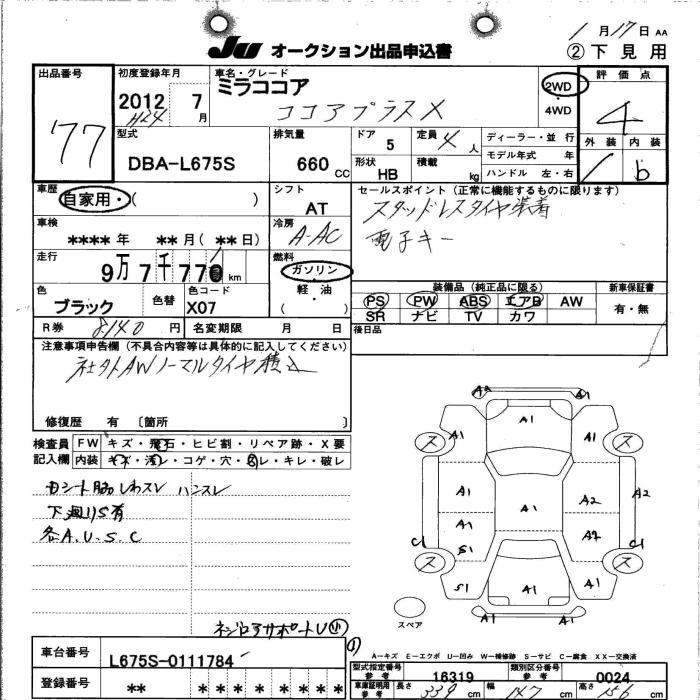 1月17日 AA
JU オークション出品申込書
②下見用
出品番号
77
初度登録年月
2012 7
H24 月
車名・グレード
ミラココア
ココアプラスX
2WD
4WD
評価点
4
外装 内装
1 b
型式
DBA-L675S
排気量
660 CC
ドア
5
定員 4 人
形状
HB
積載 kg
ディーラー・並行
モデル年式 年
ハンドル 左・右
車歴
自家用・( )
シフト
AT
セールスポイント (正常に機能するものに限ります)
スタッドレスタイヤ装着
電子キー
車検
**** 年 ** 月( ** 日)
冷房
A-AC
走行
9万7千77 km
燃料
ガソリン
軽・油
( )
色
ブラック
色替
色コード
X07
装備品 (純正品に限る)
新車保証書
PS PW ABS エアB AW
SR ナビ TV カワ
有・無
R券 8140 円
名変期限 月 日
後日品
注意事項申告欄 (不具合内容等は具体的に記入してください)
社外AWノーマルタイヤ積込
修復歴 有 〔箇所 〕
検査員
記入欄
FW キズ・飛石・ヒビ割・リペア跡・X要
内装 キズ・汚レ・コゲ・穴・スレ・キレ・破レ
Dシート脇しわスレ ハンスレ
下廻りS有
各A.U.S.C
ネジロアサポートU小
A1
A1 A1
ス ス
A1 A1 A2 A2
A1 A2
S1
C1 C1
ス ス
S1 A1 A1
A1
スペア
A-キズ E-エクボ U-凹み W-補修跡 S-サビ C-腐食 XX-交換済
車台番号
L675S-0111784
登録番号
** * *** * * * *
型式指定番号
参考
16319
類別区分番号
参考
0024
車庫証明用
参考
長さ 339 cm
幅 147 cm
高さ cm